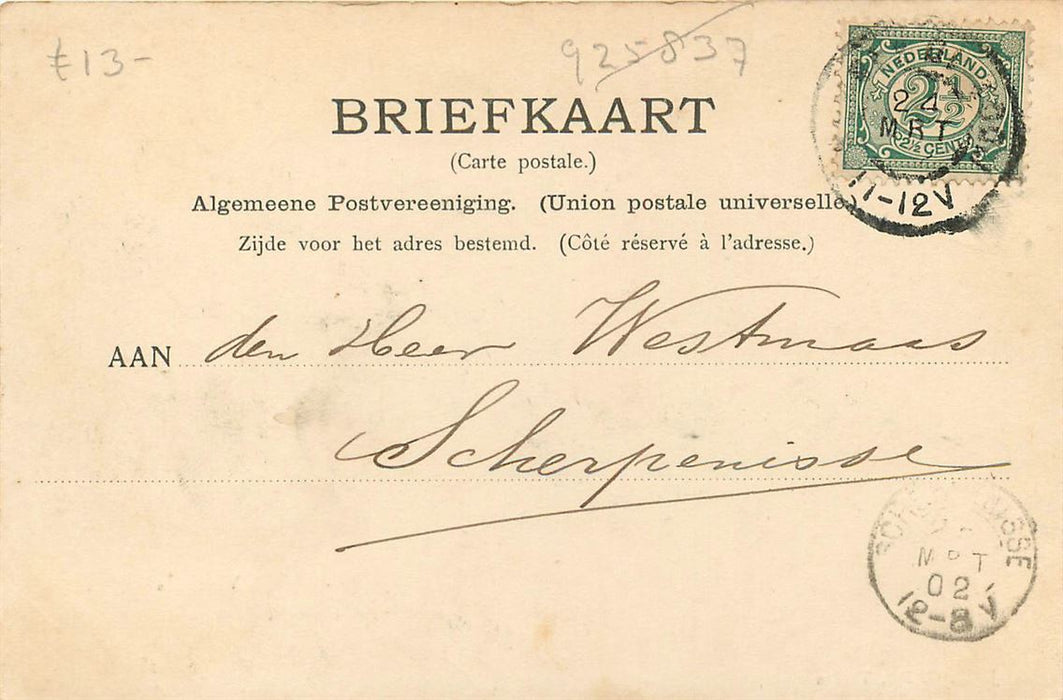 £13-
925837
BRIEFKAART
(Carte postale.)
Algemeene Postvereeniging. (Union postale universelle)
Zijde voor het adres bestemd. (Côté réservé à l'adresse.)
NEDERLAND
2½
2½ CENT
24
MRT
11-12V
AAN den Heer Westmaas
Scherpenisse
MRT
02
12-8V